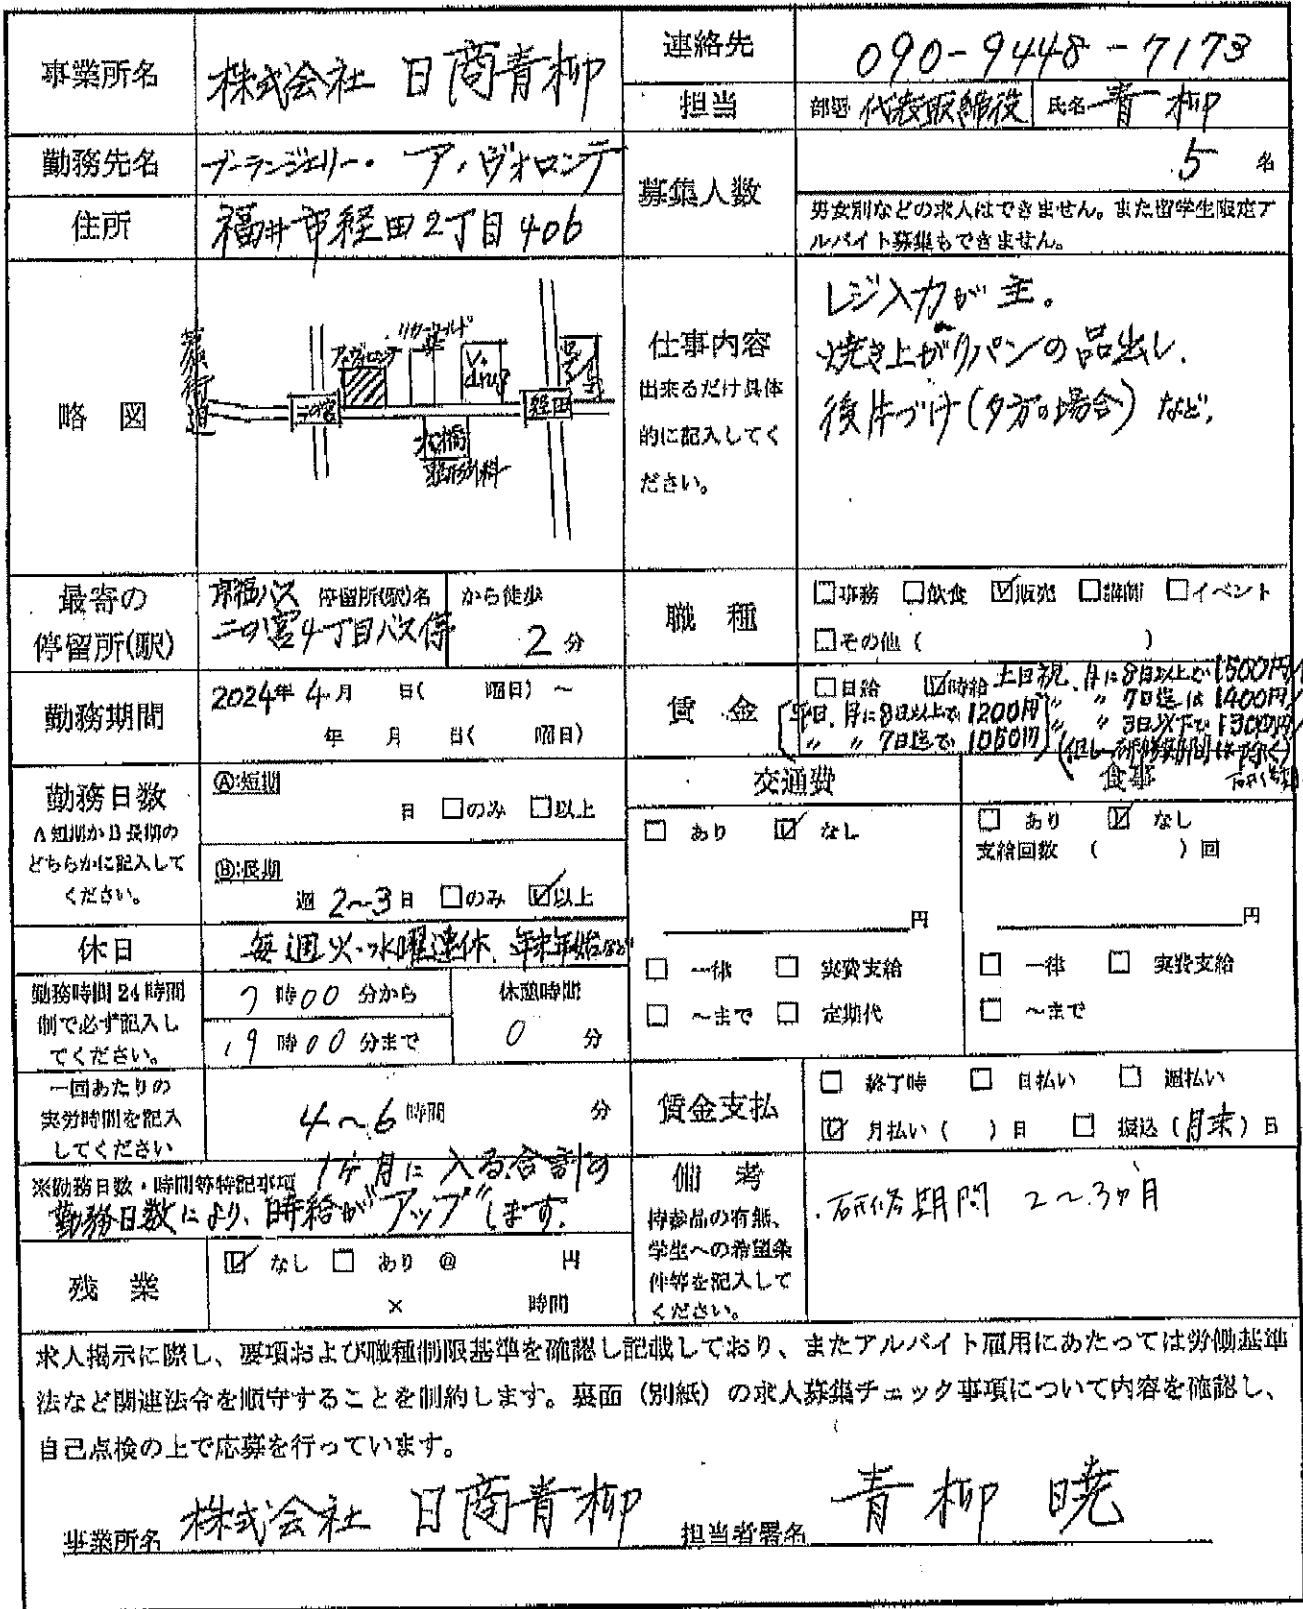 事業所名 株式会社 日商青柳
連絡先 090-9448-7173
担当 部署 代表取締役 氏名 青柳
勤務先名 ブーランジェリー・ ア・ヴォロンテ
募集人数 5 名
男女別などの求人はできません。また留学生限定ア
ルバイト募集もできません。
住所 福井市経田2丁目406
略 図
芦原街道
二の宮
ア・ヴォロンテ
V・drug
経田
大橋
整形外科
仕事内容
出来るだけ具体
的に記入してく
ださい。
レジ入力が主。
焼き上がりパンの品出し、
後片づけ(夕方の場合) など。
最寄の
停留所(駅)
京福バス 停留所(駅)名 から徒歩
二の宮4丁目バス停 2 分
職 種
□事務 □飲食 ☑販売 □調理 □イベント
□その他 ( )
勤務期間
2024年 4月 日( 曜日) ~
年 月 日( 曜日)
賃 金
□日給 ☑時給 土日祝、月に8日以上で1500円/
〃 〃 7日迄は 1400円/
〃 〃 3日以下で 1300円/
平日、月に8日以上で 1200円
〃 〃 7日迄で 1050円
(但し、研修期間は除く)
勤務日数
A短期かB長期の
どちらかに記入して
ください。
Ⓐ:短期
日 □のみ □以上
Ⓑ:長期
週 2~3日 □のみ ☑以上
交通費
□ あり ☑ なし
円
□ 一律 □ 実費支給
□ ~まで □ 定期代
食事
□ あり ☑ なし
支給回数 ( ) 回
円
□ 一律 □ 実費支給
□ ~まで
休日 毎週火・水曜連休、年末年始など
勤務時間 24時間
制で必ず記入し
てください。
7 時00 分から
19 時00 分まで
休憩時間
0 分
一回あたりの
実労時間を記入
してください
4~6 時間 分
賃金支払
□ 終了時 □ 日払い □ 週払い
☑ 月払い ( ) 日 □ 振込 (月末) 日
※勤務日数・時間等特記事項 1ヶ月に入る合計の
勤務日数により、時給が"アップ"します。
備 考
持参品の有無、
学生への希望条
件等を記入して
ください。
・研修期間 2~3ヶ月
残 業
☑ なし □ あり @ 円
× 時間
求人掲示に際し、要項および職種制限基準を確認し記載しており、またアルバイト雇用にあたっては労働基準
法など関連法令を順守することを制約します。裏面(別紙)の求人募集チェック事項について内容を確認し、
自己点検の上で応募を行っています。
事業所名 株式会社 日商青柳 担当者署名 青柳 暁